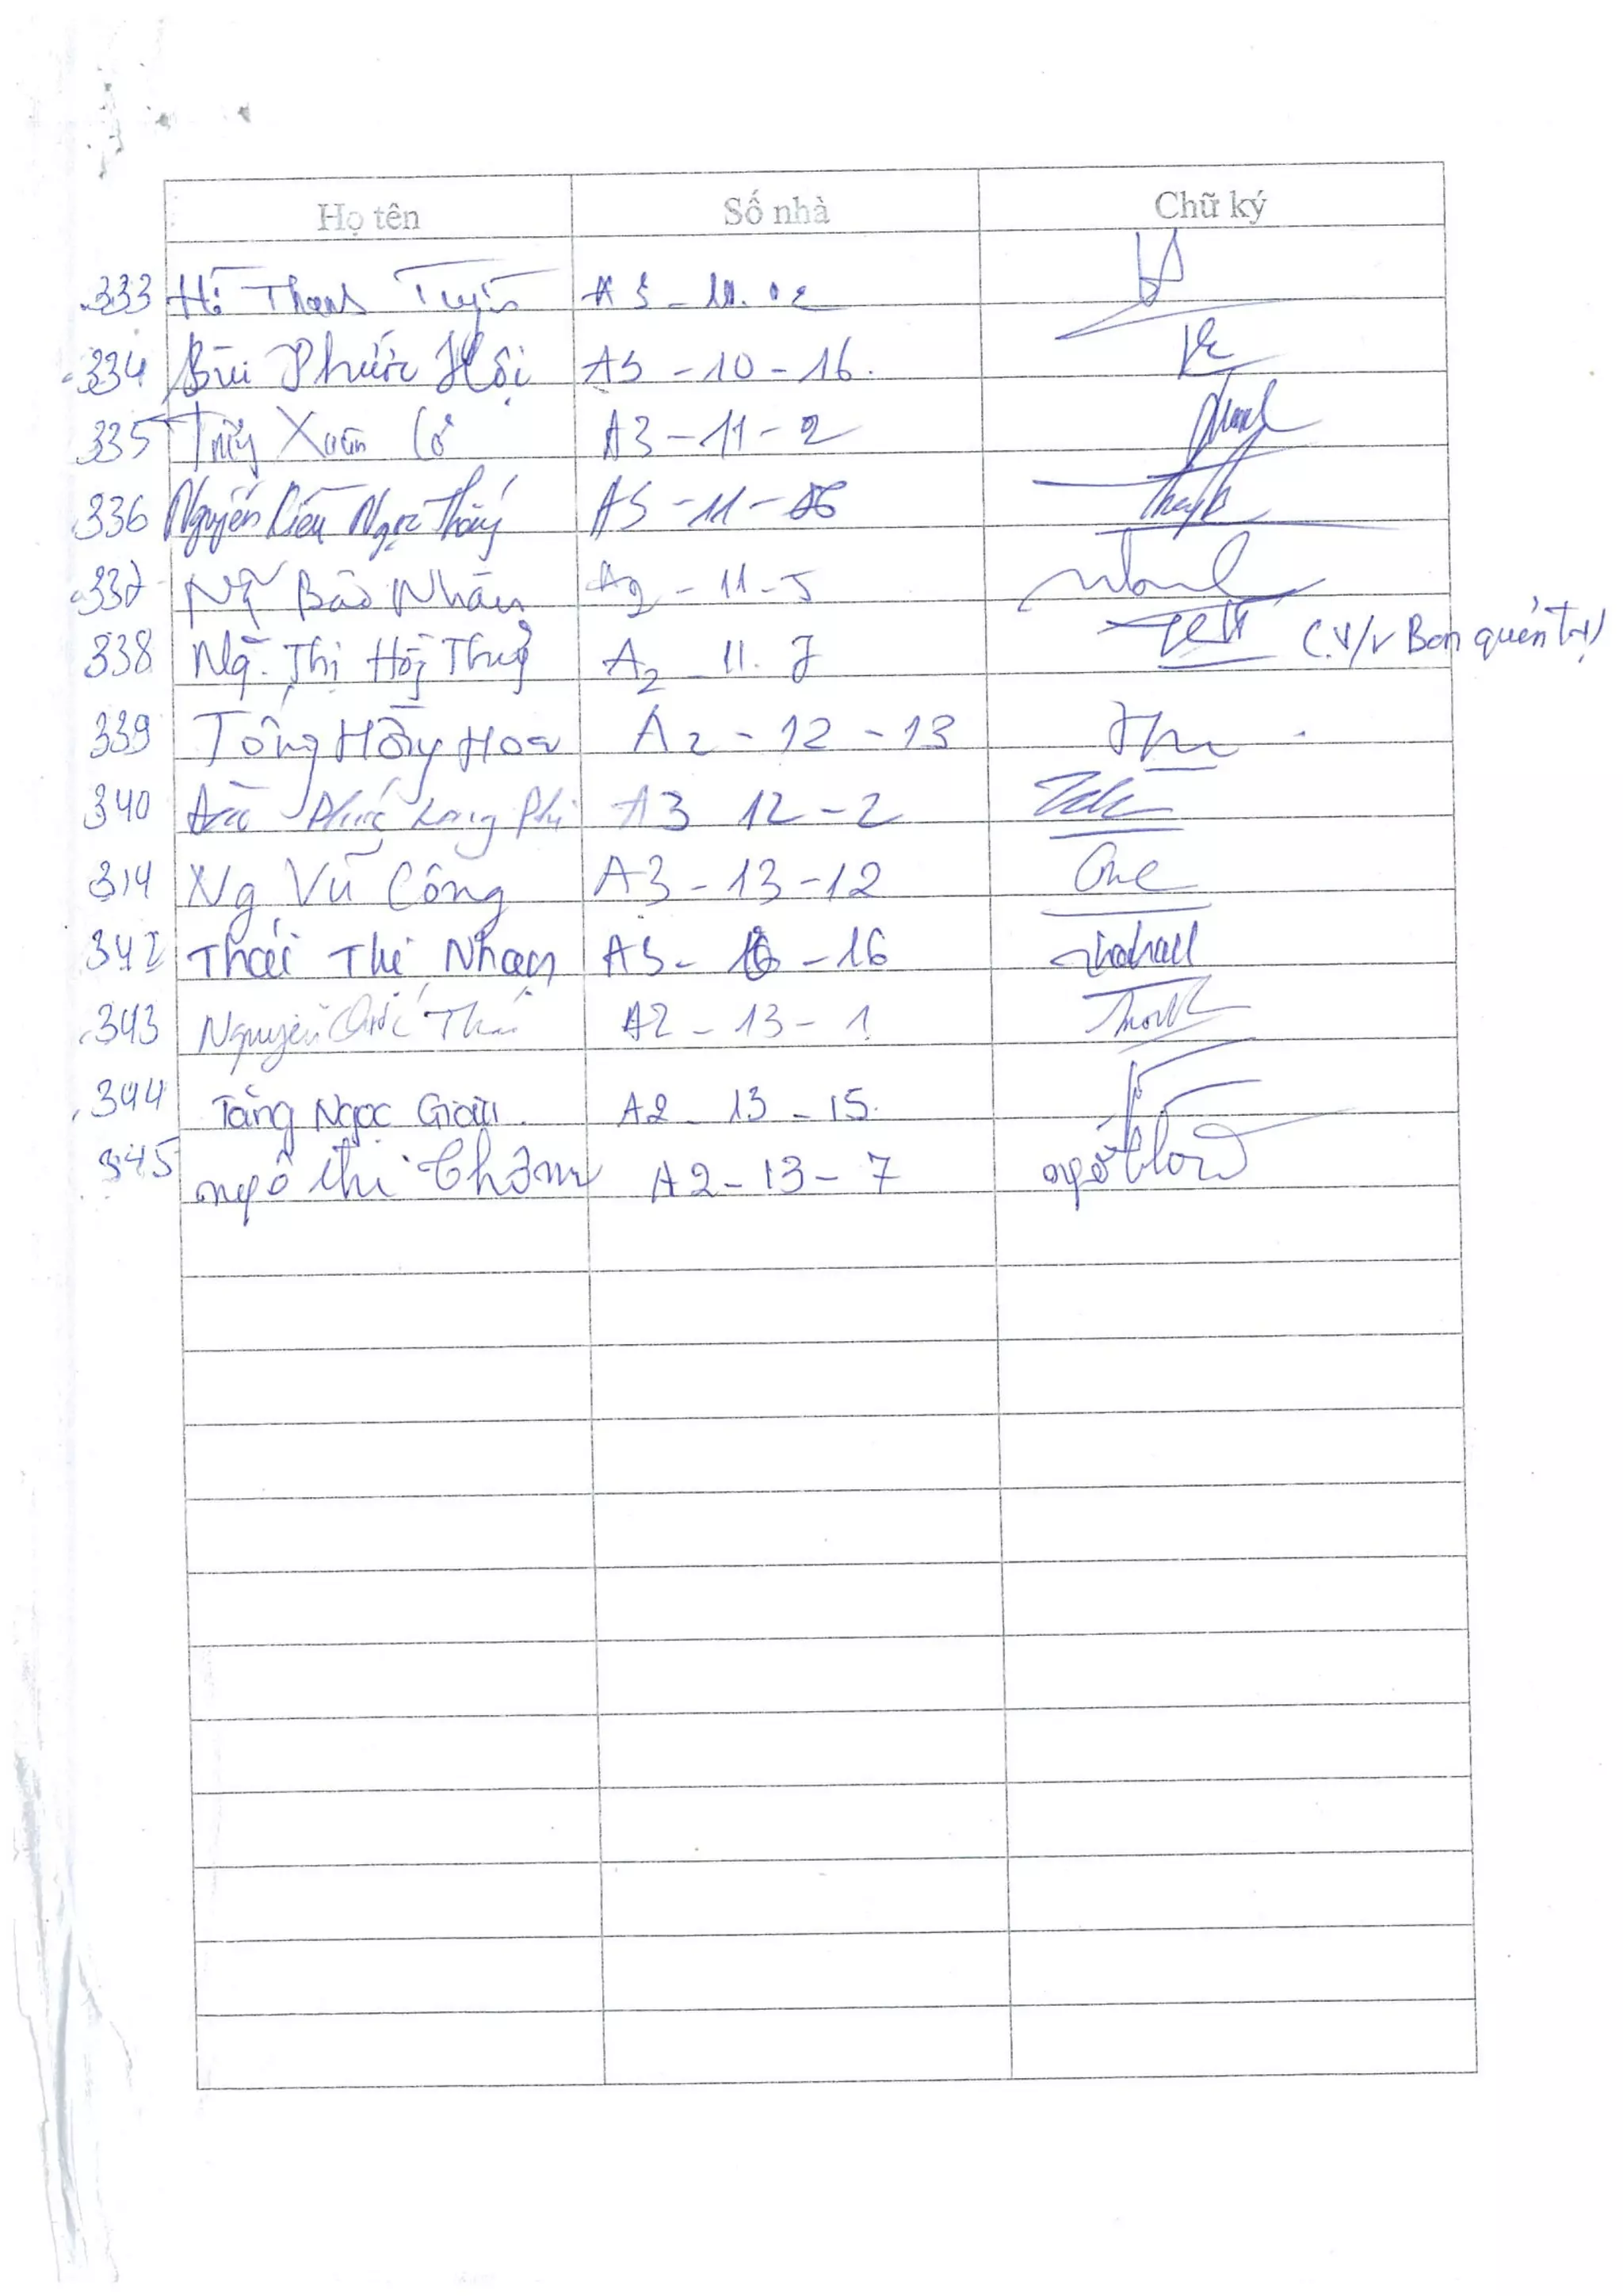 Họ tên Số nhà Chữ ký
333 Hồ Thanh Tuyền A3 - 10.02
334 Bùi Phước Hội A3 - 10 - 16.
335 Xuân A3 - 11 - 2
336 Nguyễn Kiều Ngọc A3 - 11 - 06
337 Ng~ Bảo Nhân A2 - 11 - 5
338 Ng~. Thị Hồg Thuỷ A2 - 11. 7 (V/v Ban quản trị)
339 Tống Hồng Hoa A2 - 12 - 13
340 Long Phi A3 12 - 2
314 Ng Vũ Công A3 - 13 - 12
342 Thái Thị Nhạn A3 - 16 - 16
343 Nguyễn Quốc A2 - 13 - 1
344 Tăng Ngọc Giàu A2 - 13 - 15.
345 ngô thị Thơm A2 - 13 - 7